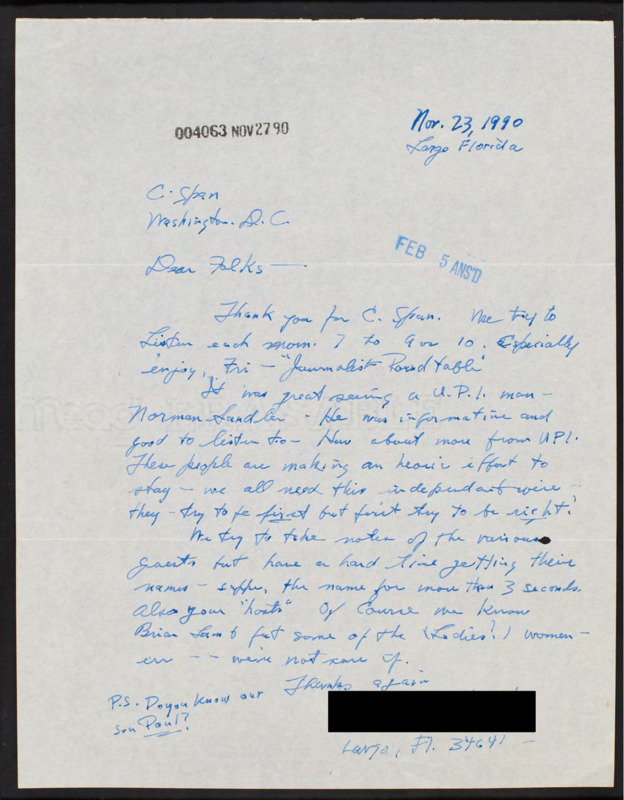 004063 NOV 27 90
Nov. 23, 1990
Largo Florida
C. Span
Washington. D. C.
FEB 5 ANS'D
Dear Folks —
Thank you for C. Span. We try to
Listen each morn. 7 to 9 or 10. Especially
enjoy, Fri — "Journalist Round table"
It was great seeing a U.P.I. man —
Norman Sandler - He was informative and
good to listen to - How about more from UPI.
These people are making an heroic effort to
stay — we all need this independant wire —
they - try to be first but first try to be right!
We try to take notes of the various
guests but have a hard time getting their
names — the name for more than 3 seconds.
Also your "hosts" Of Course we know
Brian Lamb but some of the (Ladies?) women —
err — — we're not sure of.
Thanks again
P.S. Do you know our
son Paul?
Largo, Fl. 34641 —